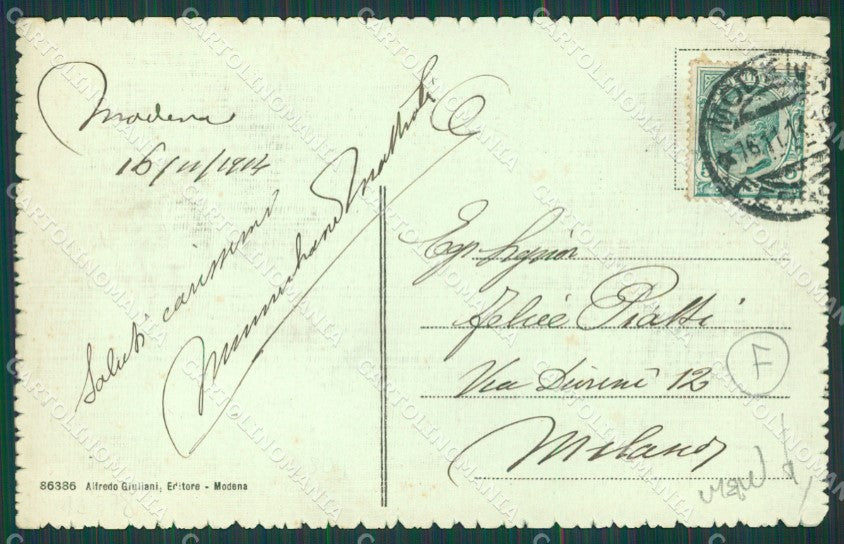 Modena
16/11/1914
Saluti carissimi
MODENA
16.11.14
Egr Signor
Felice Piatti
Via Durini 12
Milano
7
86386 Alfredo Giuliani, Editore - Modena
CARTOLINOMANIA